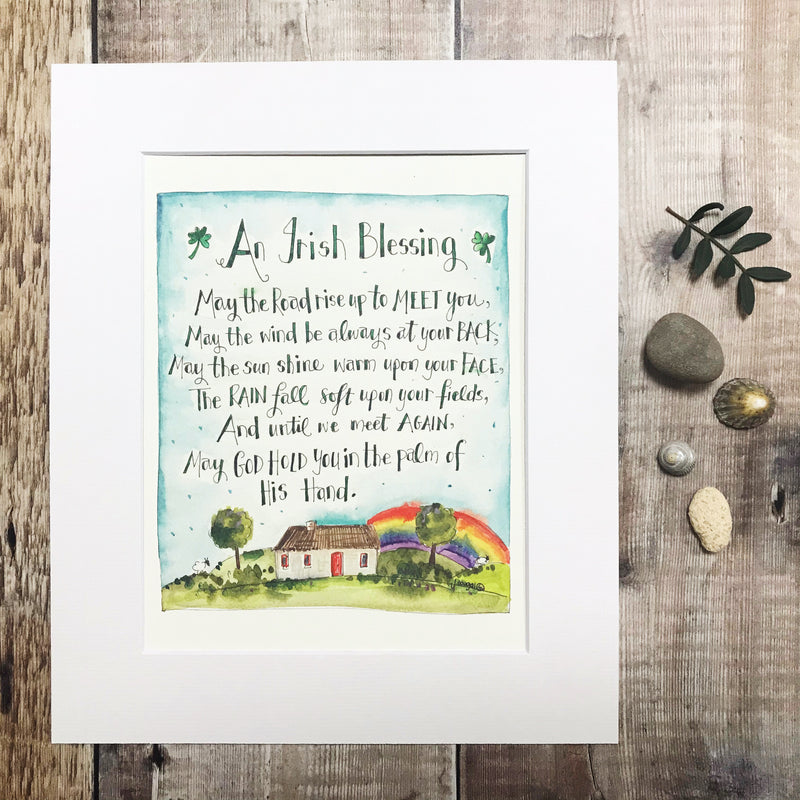 An Irish Blessing
May the Road rise up to MEET you,
May the wind be always at your BACK,
May the sun shine warm upon your FACE,
The RAIN fall soft upon your fields,
And until we meet AGAIN,
May GOD HOLD YOU in the palm of
His Hand.